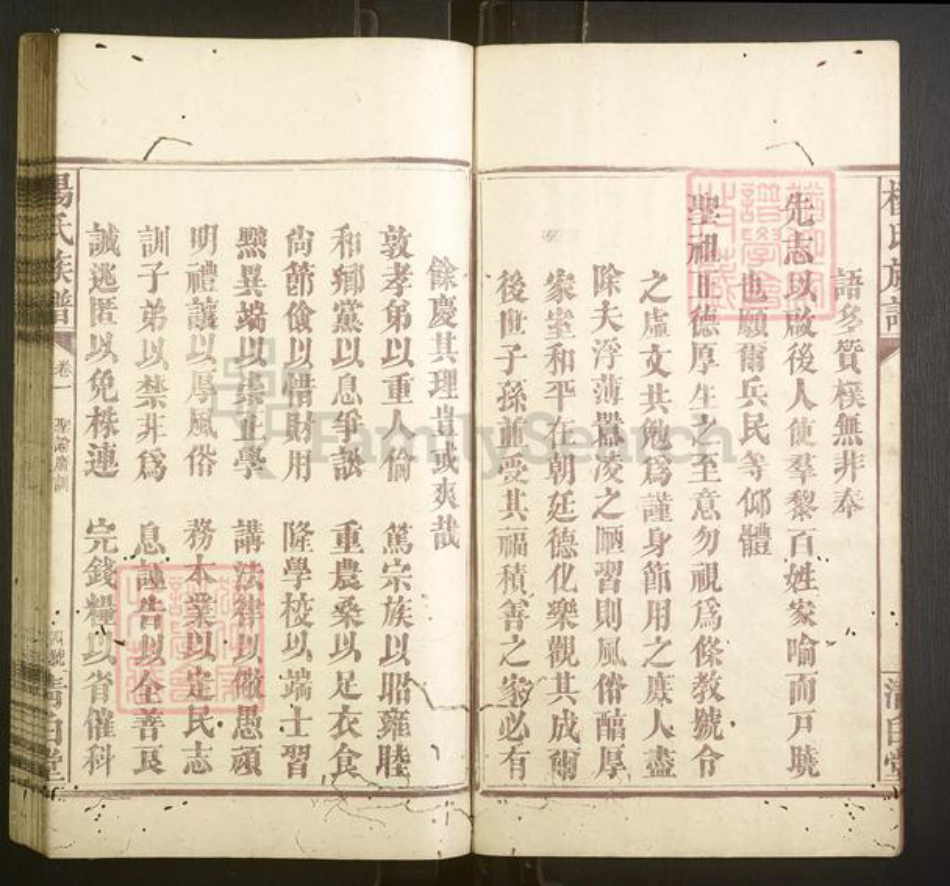 語多質樸無非奉
先志以啟後人使羣黎百姓家喻而戶曉
也願爾兵民等仰體
聖祖正德厚生之至意勿視爲條教號令
之虛文共勉爲謹身節用之庶人盡
除夫浮薄囂凌之陋習則風俗醕厚
家室和平在朝廷德化樂觀其成爾
後世子孫並受其福積善之家必有
餘慶其理豈或爽哉
敦孝弟以重人倫 篤宗族以昭雍睦
和鄉黨以息爭訟 重農桑以足衣食
尙節儉以惜財用 隆學校以端士習
黜異端以崇正學 講法律以儆愚頑
明禮讓以厚風俗 務本業以定民志
訓子弟以禁非爲 息誣告以全善良
誡逃匿以免株連 完錢糧以省催科
楊氏族譜 卷一 聖諭廣訓 四號 清白堂
FamilySearch